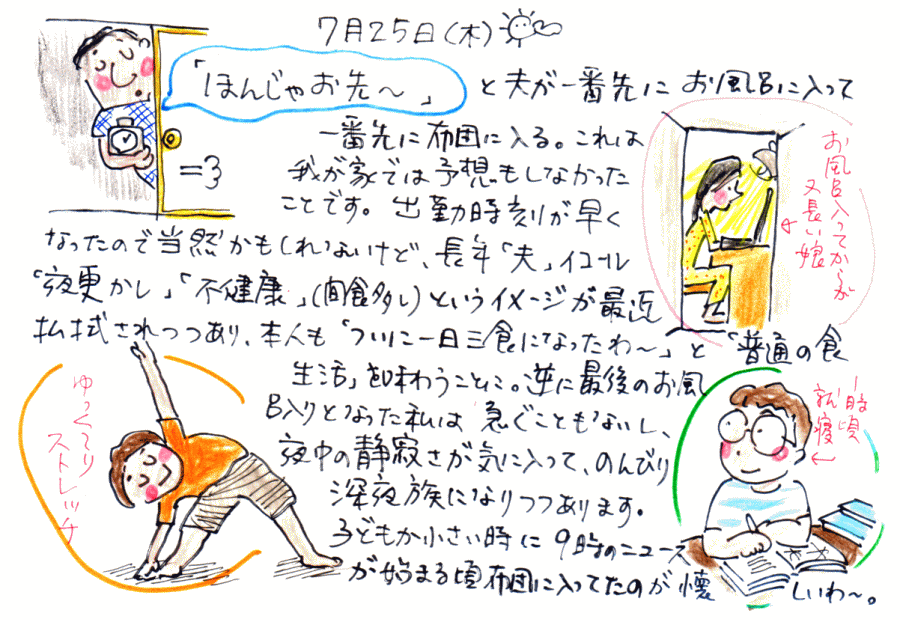 7月25日(木)
「ほんじゃお先〜」
と夫が一番先にお風呂に入って
一番先に布団に入る。これは
我が家では予想もしなかった
ことです。出勤時刻が早く
なったので当然かもしれないけど、長年「夫」イコール
「夜更かし」「不健康」(間食多し)というイメージが最近
払拭されつつあり、本人も「ついに一日三食になったわ〜」と「普通の食
生活」を味わうことに。逆に最後のお風
呂入りとなった私は急ぐこともないし、
夜中の静寂さが気に入って、のんびり
深夜族になりつつあります。
子どもが小さい時に9時のニュース
が始まる頃布団に入ってたのが懐
しいわ〜。
=3
お風呂入ってからが
又長い娘
ゆっくり
ストレッチ
1時頃
就寝